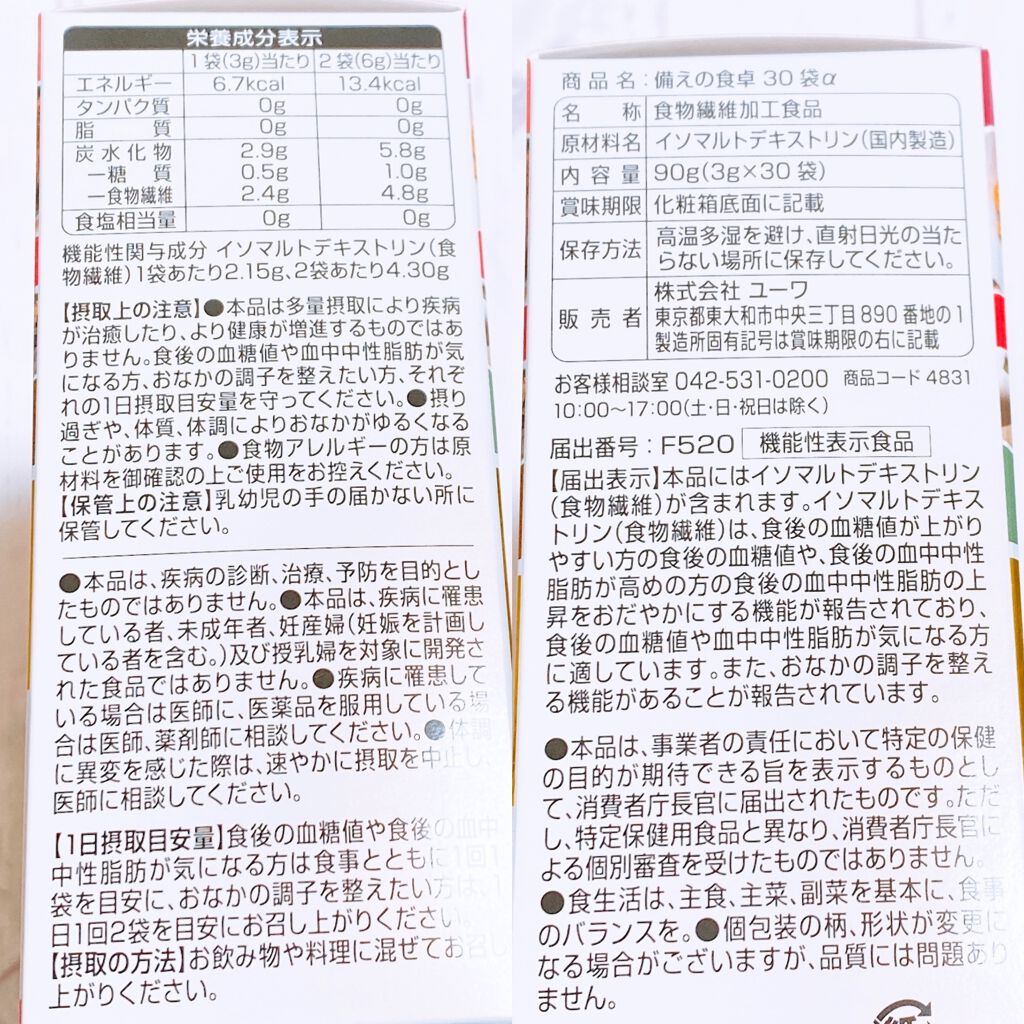 栄養成分表示
1袋(3g)当たり 2袋(6g)当たり
エネルギー 6.7kcal 13.4kcal
タンパク質 0g 0g
脂質 0g 0g
炭水化物 2.9g 5.8g
―糖質 0.5g 1.0g
―食物繊維 2.4g 4.8g
食塩相当量 0g 0g
機能性関与成分 イソマルトデキストリン(食
物繊維)1袋あたり2.15g、2袋あたり4.30g
【摂取上の注意】●本品は多量摂取により疾病
が治癒したり、より健康が増進するものではあ
りません。食後の血糖値や血中中性脂肪が気
になる方、おなかの調子を整えたい方、それぞ
れの1日摂取目安量を守ってください。●摂り
過ぎや、体質、体調によりおなかがゆるくなる
ことがあります。●食物アレルギーの方は原
材料を御確認の上ご使用をお控えください。
【保管上の注意】乳幼児の手の届かない所に
保管してください。
●本品は、疾病の診断、治療、予防を目的とし
たものではありません。●本品は、疾病に罹患
している者、未成年者、妊産婦(妊娠を計画し
ている者を含む。)及び授乳婦を対象に開発さ
れた食品ではありません。●疾病に罹患して
いる場合は医師に、医薬品を服用している場
合は医師、薬剤師に相談してください。●体調
に異変を感じた際は、速やかに摂取を中止し、
医師に相談してください。
【1日摂取目安量】食後の血糖値や食後の血中
中性脂肪が気になる方は食事とともに1回1
袋を目安に、おなかの調子を整えたい方は、1
日1回2袋を目安にお召し上がりください。
【摂取の方法】お飲み物や料理に混ぜてお召し
上がりください。
商品名:備えの食卓 30袋α
名称 食物繊維加工食品
原材料名 イソマルトデキストリン(国内製造)
内容量 90g(3g×30袋)
賞味期限 化粧箱底面に記載
保存方法 高温多湿を避け、直射日光の当た
らない場所に保存してください。
販売者 株式会社 ユーワ
東京都東大和市中央三丁目890番地の1
製造所固有記号は賞味期限の右に記載
お客様相談室 042-531-0200 商品コード 4831
10:00～17:00(土・日・祝日は除く)
届出番号:F520 機能性表示食品
【届出表示】本品にはイソマルトデキストリン
(食物繊維)が含まれます。イソマルトデキス
トリン(食物繊維)は、食後の血糖値が上がり
やすい方の食後の血糖値や、食後の血中中性
脂肪が高めの方の食後の血中中性脂肪の上
昇をおだやかにする機能が報告されており、
食後の血糖値や血中中性脂肪が気になる方
に適しています。また、おなかの調子を整え
る機能があることが報告されています。
●本品は、事業者の責任において特定の保健
の目的が期待できる旨を表示するものとし
て、消費者庁長官に届出されたものです。ただ
し、特定保健用食品と異なり、消費者庁長官に
よる個別審査を受けたものではありません。
●食生活は、主食、主菜、副菜を基本に、食事
のバランスを。●個包装の柄、形状が変更に
なる場合がございますが、品質には問題あり
ません。